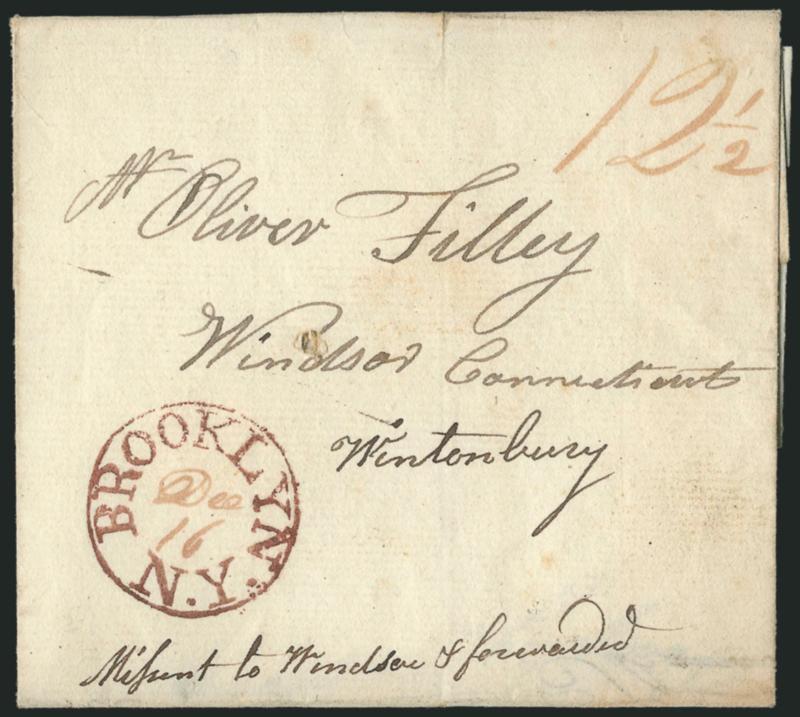 12 1/2
Mr Oliver Filley
Windsor Connecticut
Wintonbury
BROOKLYN. N.Y.
Dec
16
Missent to Windsor & forwarded